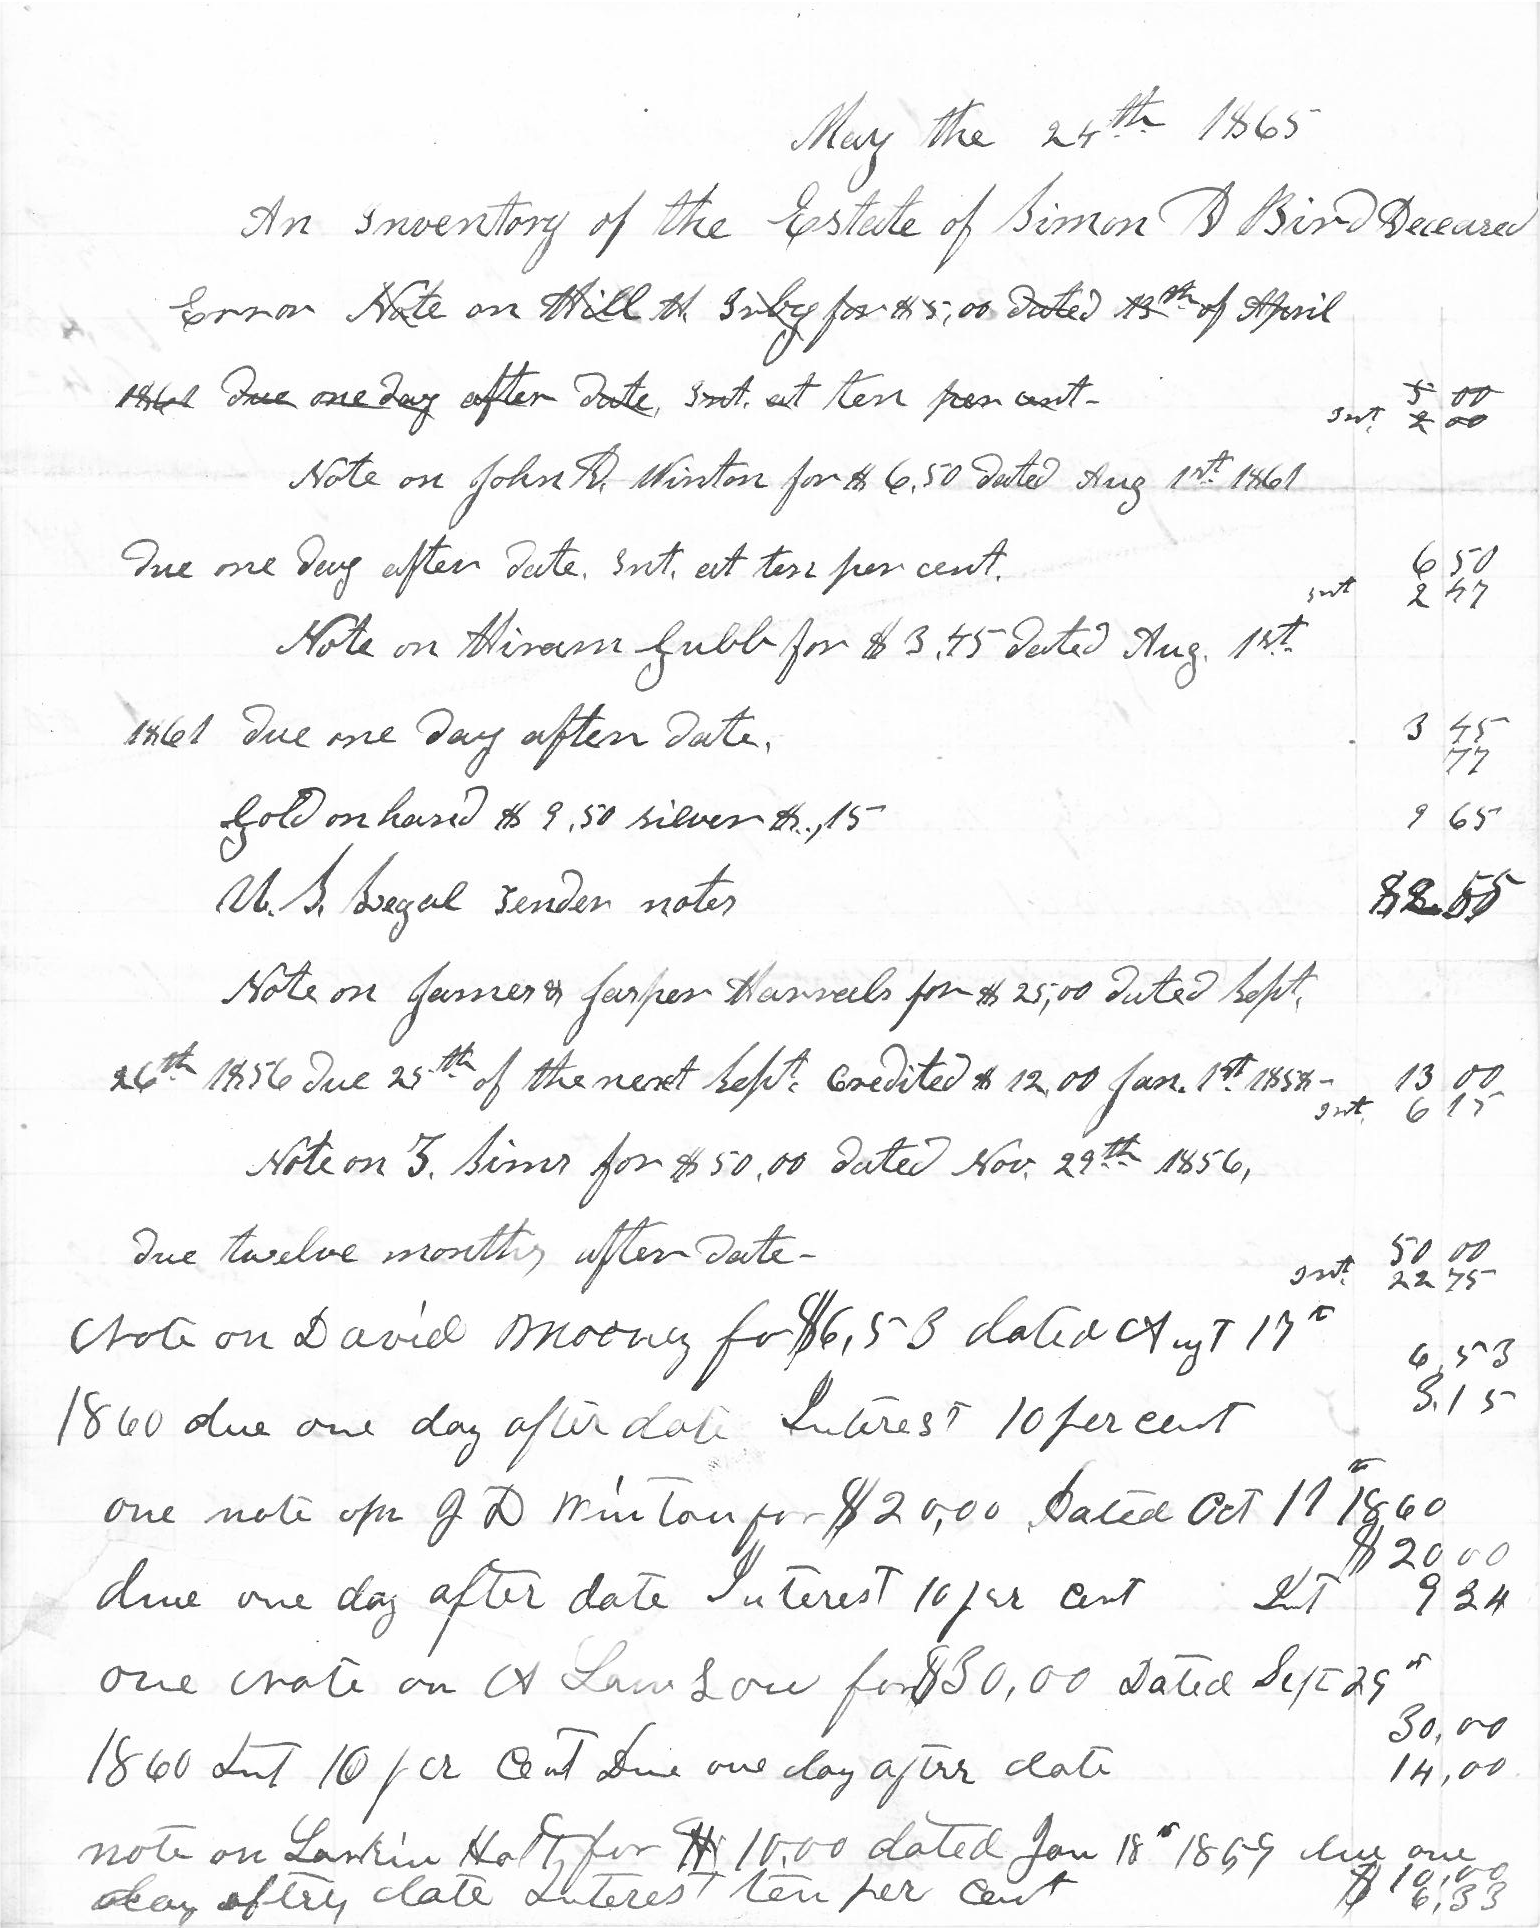 May the 24th 1865
An Inventory of the Estate of Simon D Bird Deceased
Error Note on Hill H. Irby for $5,00 dated 13th of April
1861 due one day after date, Int. at ten per cent-
5 00
Int. 2 00
Note on John D. Winton for $6,50 dated Aug 1st 1861
due one day after date. Int. at ten per cent.
6 50
Int 2 47
Note on Hiram Gubb for $3,45 dated Aug. 1st
1861 due one day after date,
3 45
77
Gold on hand $9,50 silver $..,15
9 65
U. S. Legal Tender notes
Note on James & Jasper Harrals for $25,00 dated Sept,
26th 1856 due 25th of the next Sept. Credited $12,00 Jan. 1st 1858-
13 00
Int. 6 15
Note on T. Sims for $50,00 dated Nov. 29th 1856,
due twelve months after date-
50 00
Int. 22 75
Note on David Mooney for $6,53 dated Augt 17th
6,53
1860 due one day after date Interest 10 per cent
3.15
one note on J D Winton for $20,00 Dated Oct 11th 1860
$20 00
due one day after date Interest 10 per cent Int 9 24
one Note on A Lawson for $30,00 Dated Sept 29th
30,00
1860 Int 10 per Cent Due one day after date
14,00
note on Larkin Holt for $10,00 dated Jan 18th 1859 due one
$10,00
day after date Interest ten per Cent
6,33